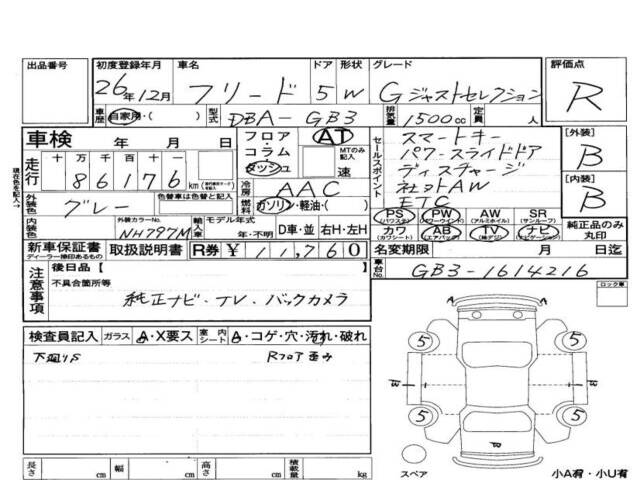 出品番号 初度登録年月 車名 ドア 形状 グレード 評価点
26年12月 フリード 5 W Gジャストセレクション R
車歴 自家用・( ) 型式 DBA-GB3 排気量 1500cc 定員 人
車検 年 月 日 フロア・コラム・ダッシュ AT MTのみ記入 速
現在色を記入→
走行 十万千百十一 86176 km
冷房 AAC
燃料 ガソリン・軽油・( )
セールスポイント
スマートキー
パワースライドドア
ディスチャージ
社外AW
ETC
[外装] B
[内装] B
外装色 グレー 色替車は色替と記入
内装色 外装カラーNo. NH797M 輸入車 モデル年式 年・不明 D車・並 右H・左H
PS (パワステ) PW (パワーウインド) AW (アルミホイル) SR (サンルーフ)
カワ (カワシート) AB (エアバック) TV ナビ (ナビゲーション) 純正品のみ丸印
新車保証書 ディーラー捺印あるもの 取扱説明書 R券 ¥11,760 名変期限 月 日迄
注意事項 後日品【 】 車台No. GB3-1614216
不具合箇所等 ロック車
純正ナビ・TV・バックカメラ
検査員記入 ガラス A・X要ス 室内シート A・コゲ・穴・汚れ・破れ
下廻りS Rフロア歪み
5 5
5 5
長さ cm 幅 cm 高さ cm 積載量 kg スペア 小A有・小U有